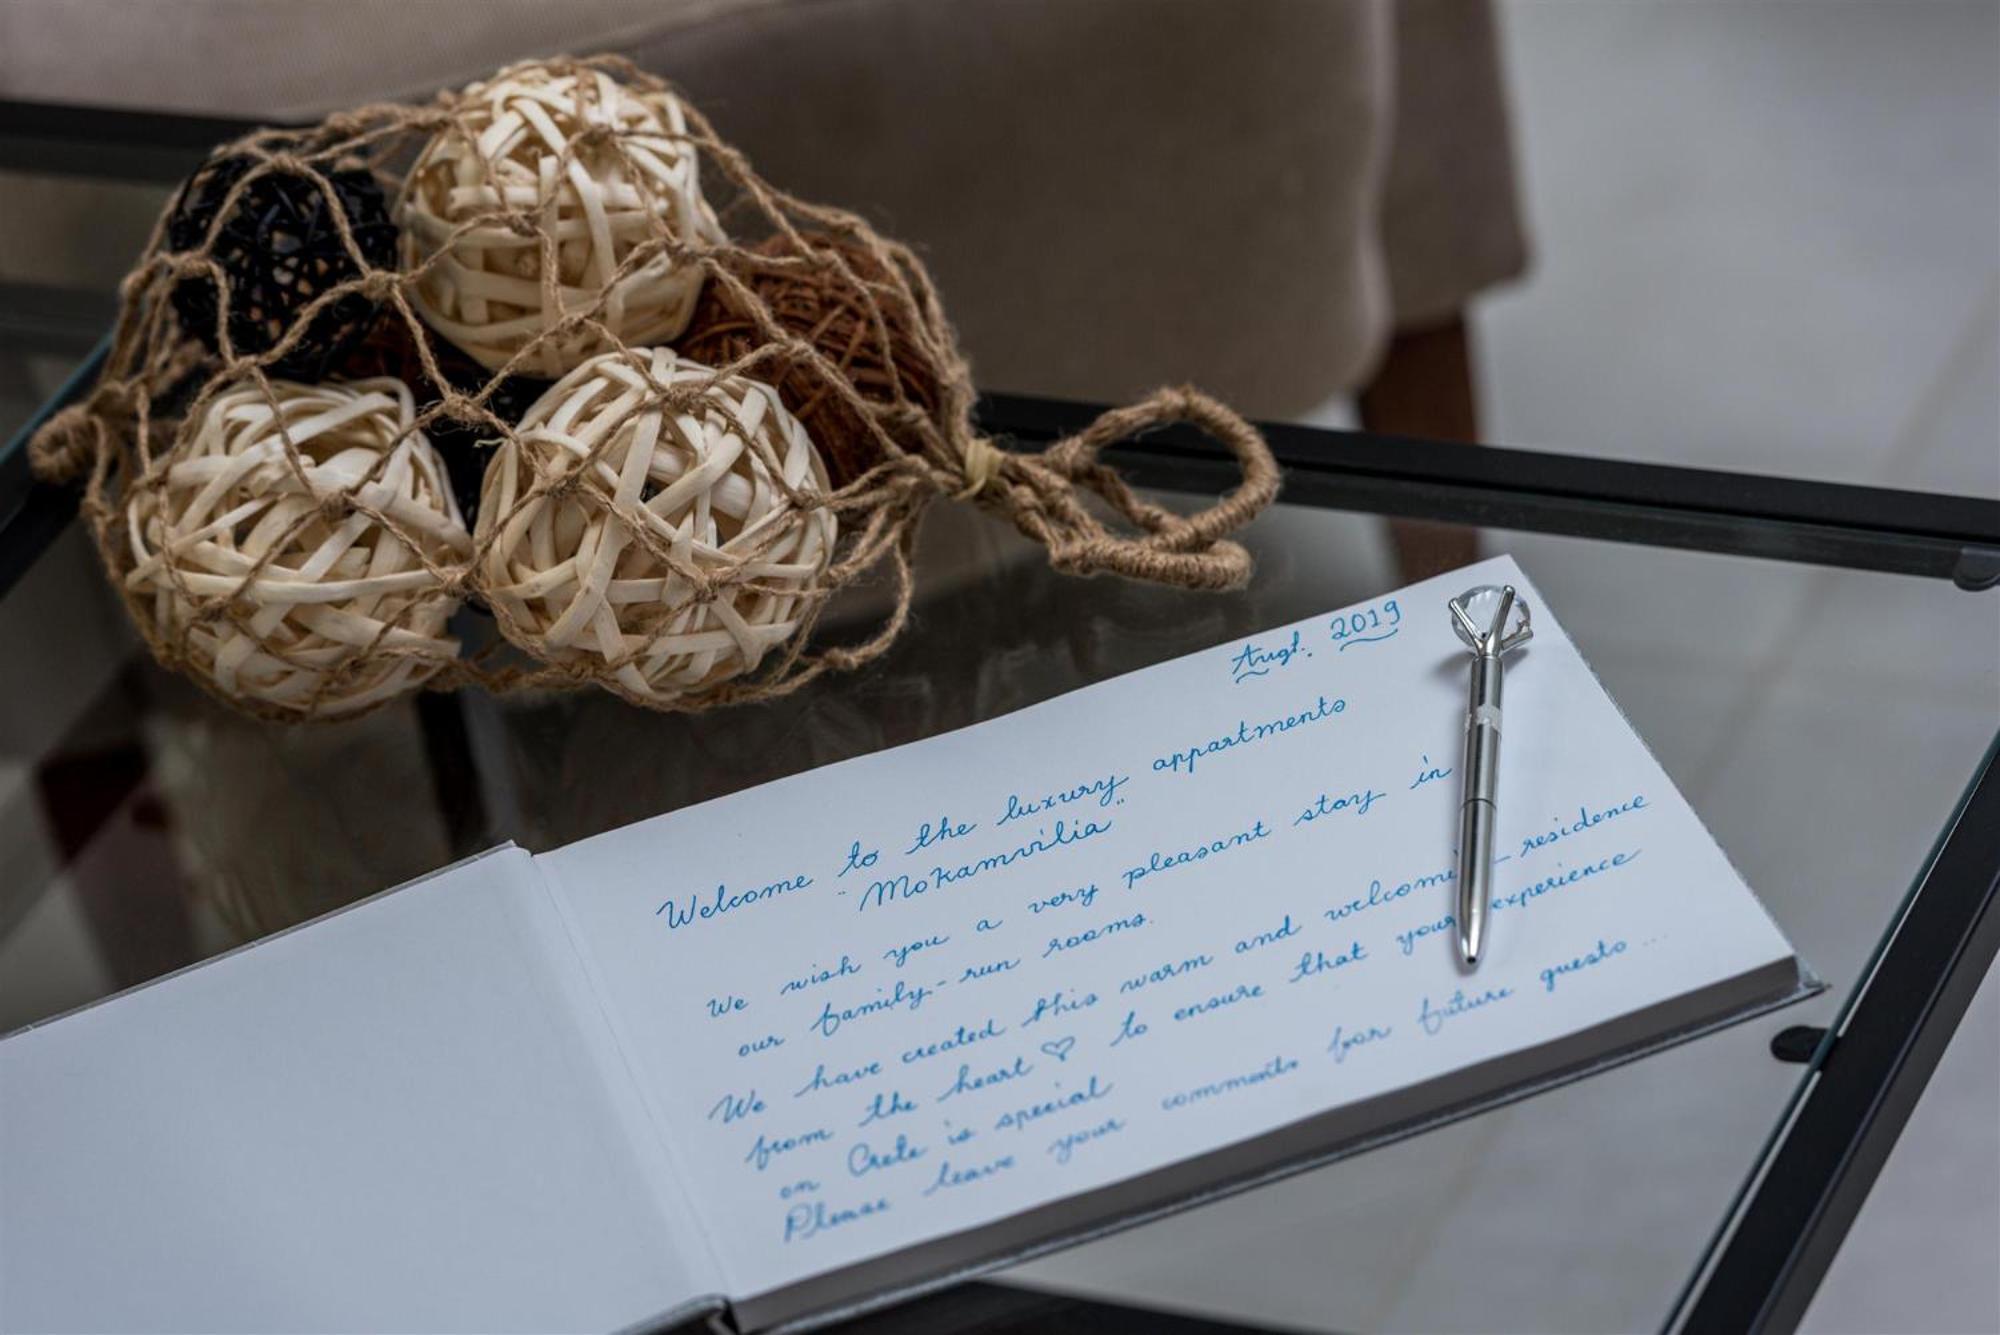 Augt. 2019
Welcome to the luxury appartments
"Mokamvilia"
We wish you a very pleasant stay in
our family-run rooms.
We have created this warm and welcoming residence
from the heart ♡ to ensure that your experience
on Crete is special
Please leave your comments for future guests ...